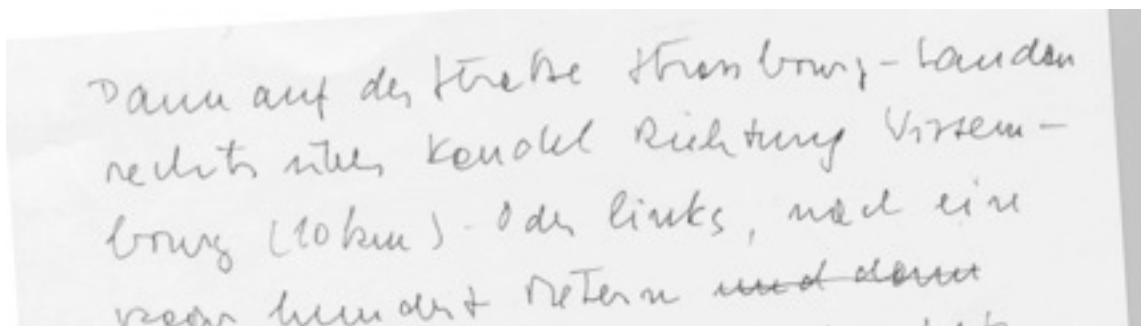 Dann auf der Straße Strassbourg-Landau
rechts über Kandel Richtung Vissem-
bourg (10 km). Oder links, nach ein
paar hundert Metern und dann